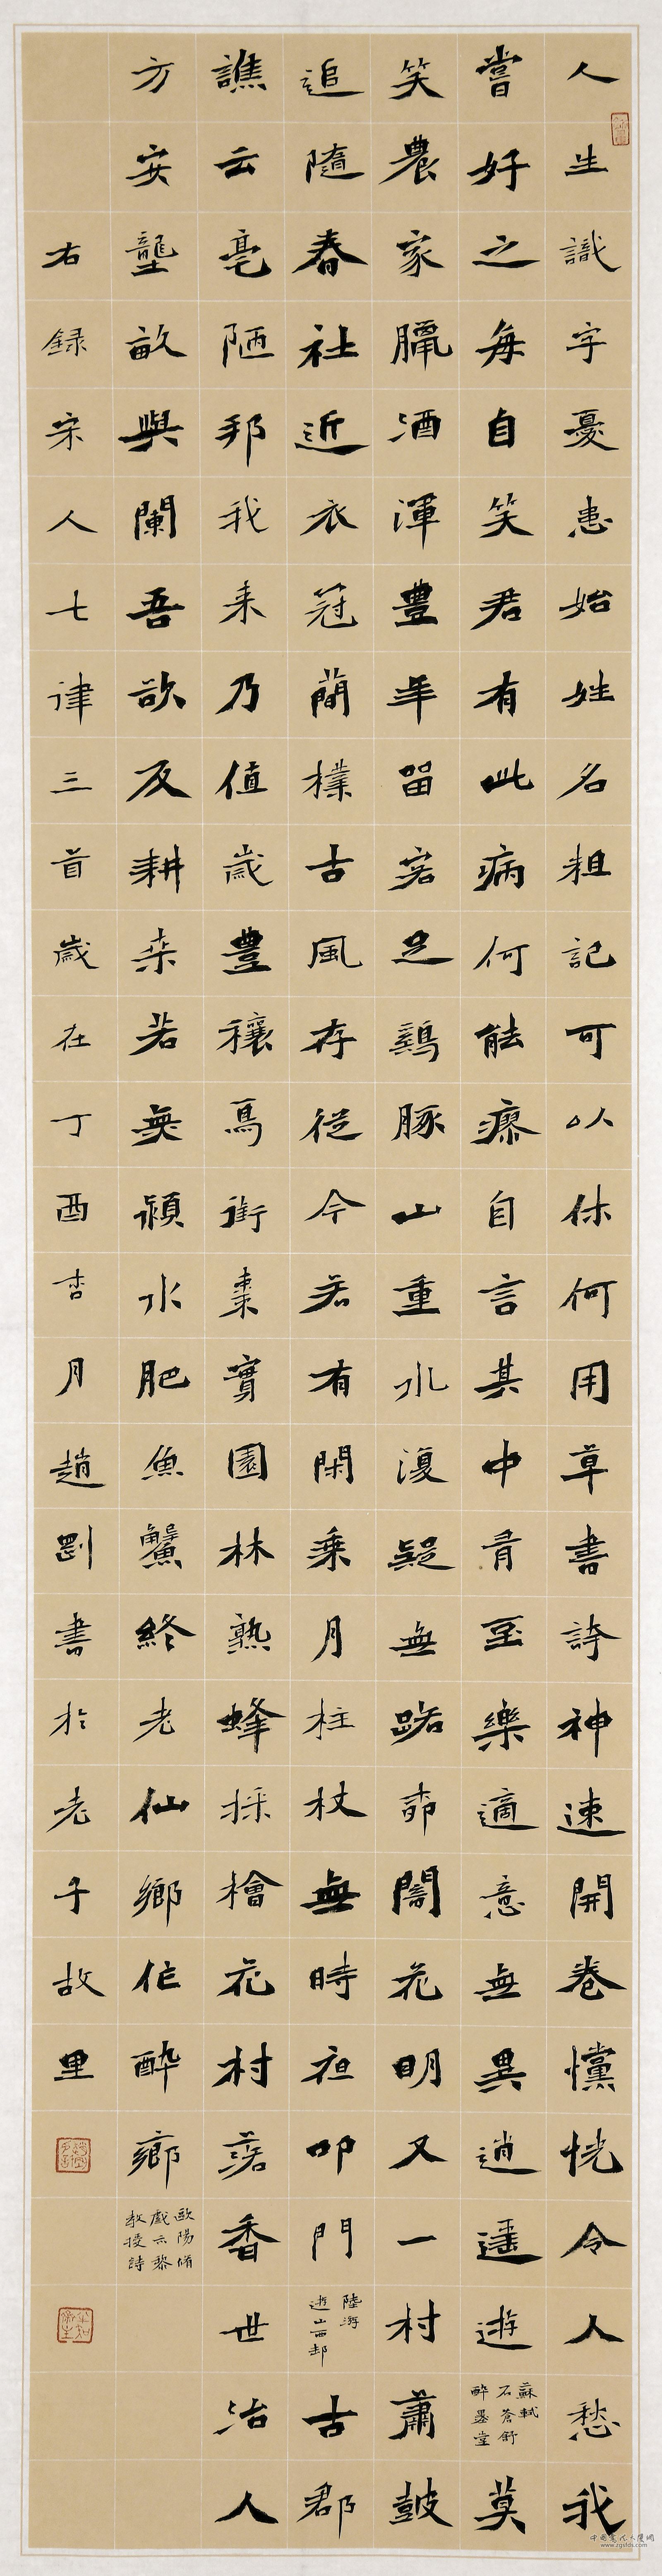 人生識字憂患始姓名粗記可以休何用草書誇神速開卷戃恍令人愁我
嘗好之每自笑君有此病何能瘳自言其中有至樂適意無異逍遙遊
蘇軾
石蒼舒
醉墨堂
莫
笑農家臘酒渾豐年留客足鷄豚山重水復疑無路柳闇花明又一村蕭鼓
追隨春社近衣冠簡樸古風存從今若有閑乘月柱杖無時夜叩門
陸游
遊山西邨
古郡
譙云亳陋邦我来乃值歲豐穰烏銜棗實園林熟蜂採檜花村落香世治人
方安壟畝與闌吾欲反耕桒若無潁水肥魚蟹終老仙鄉作醉鄉
歐陽脩
戲示黎
教授詩
右録宋人七律三首歲在丁酉杏月趙剛書於老子故里
www.zgsfds.com